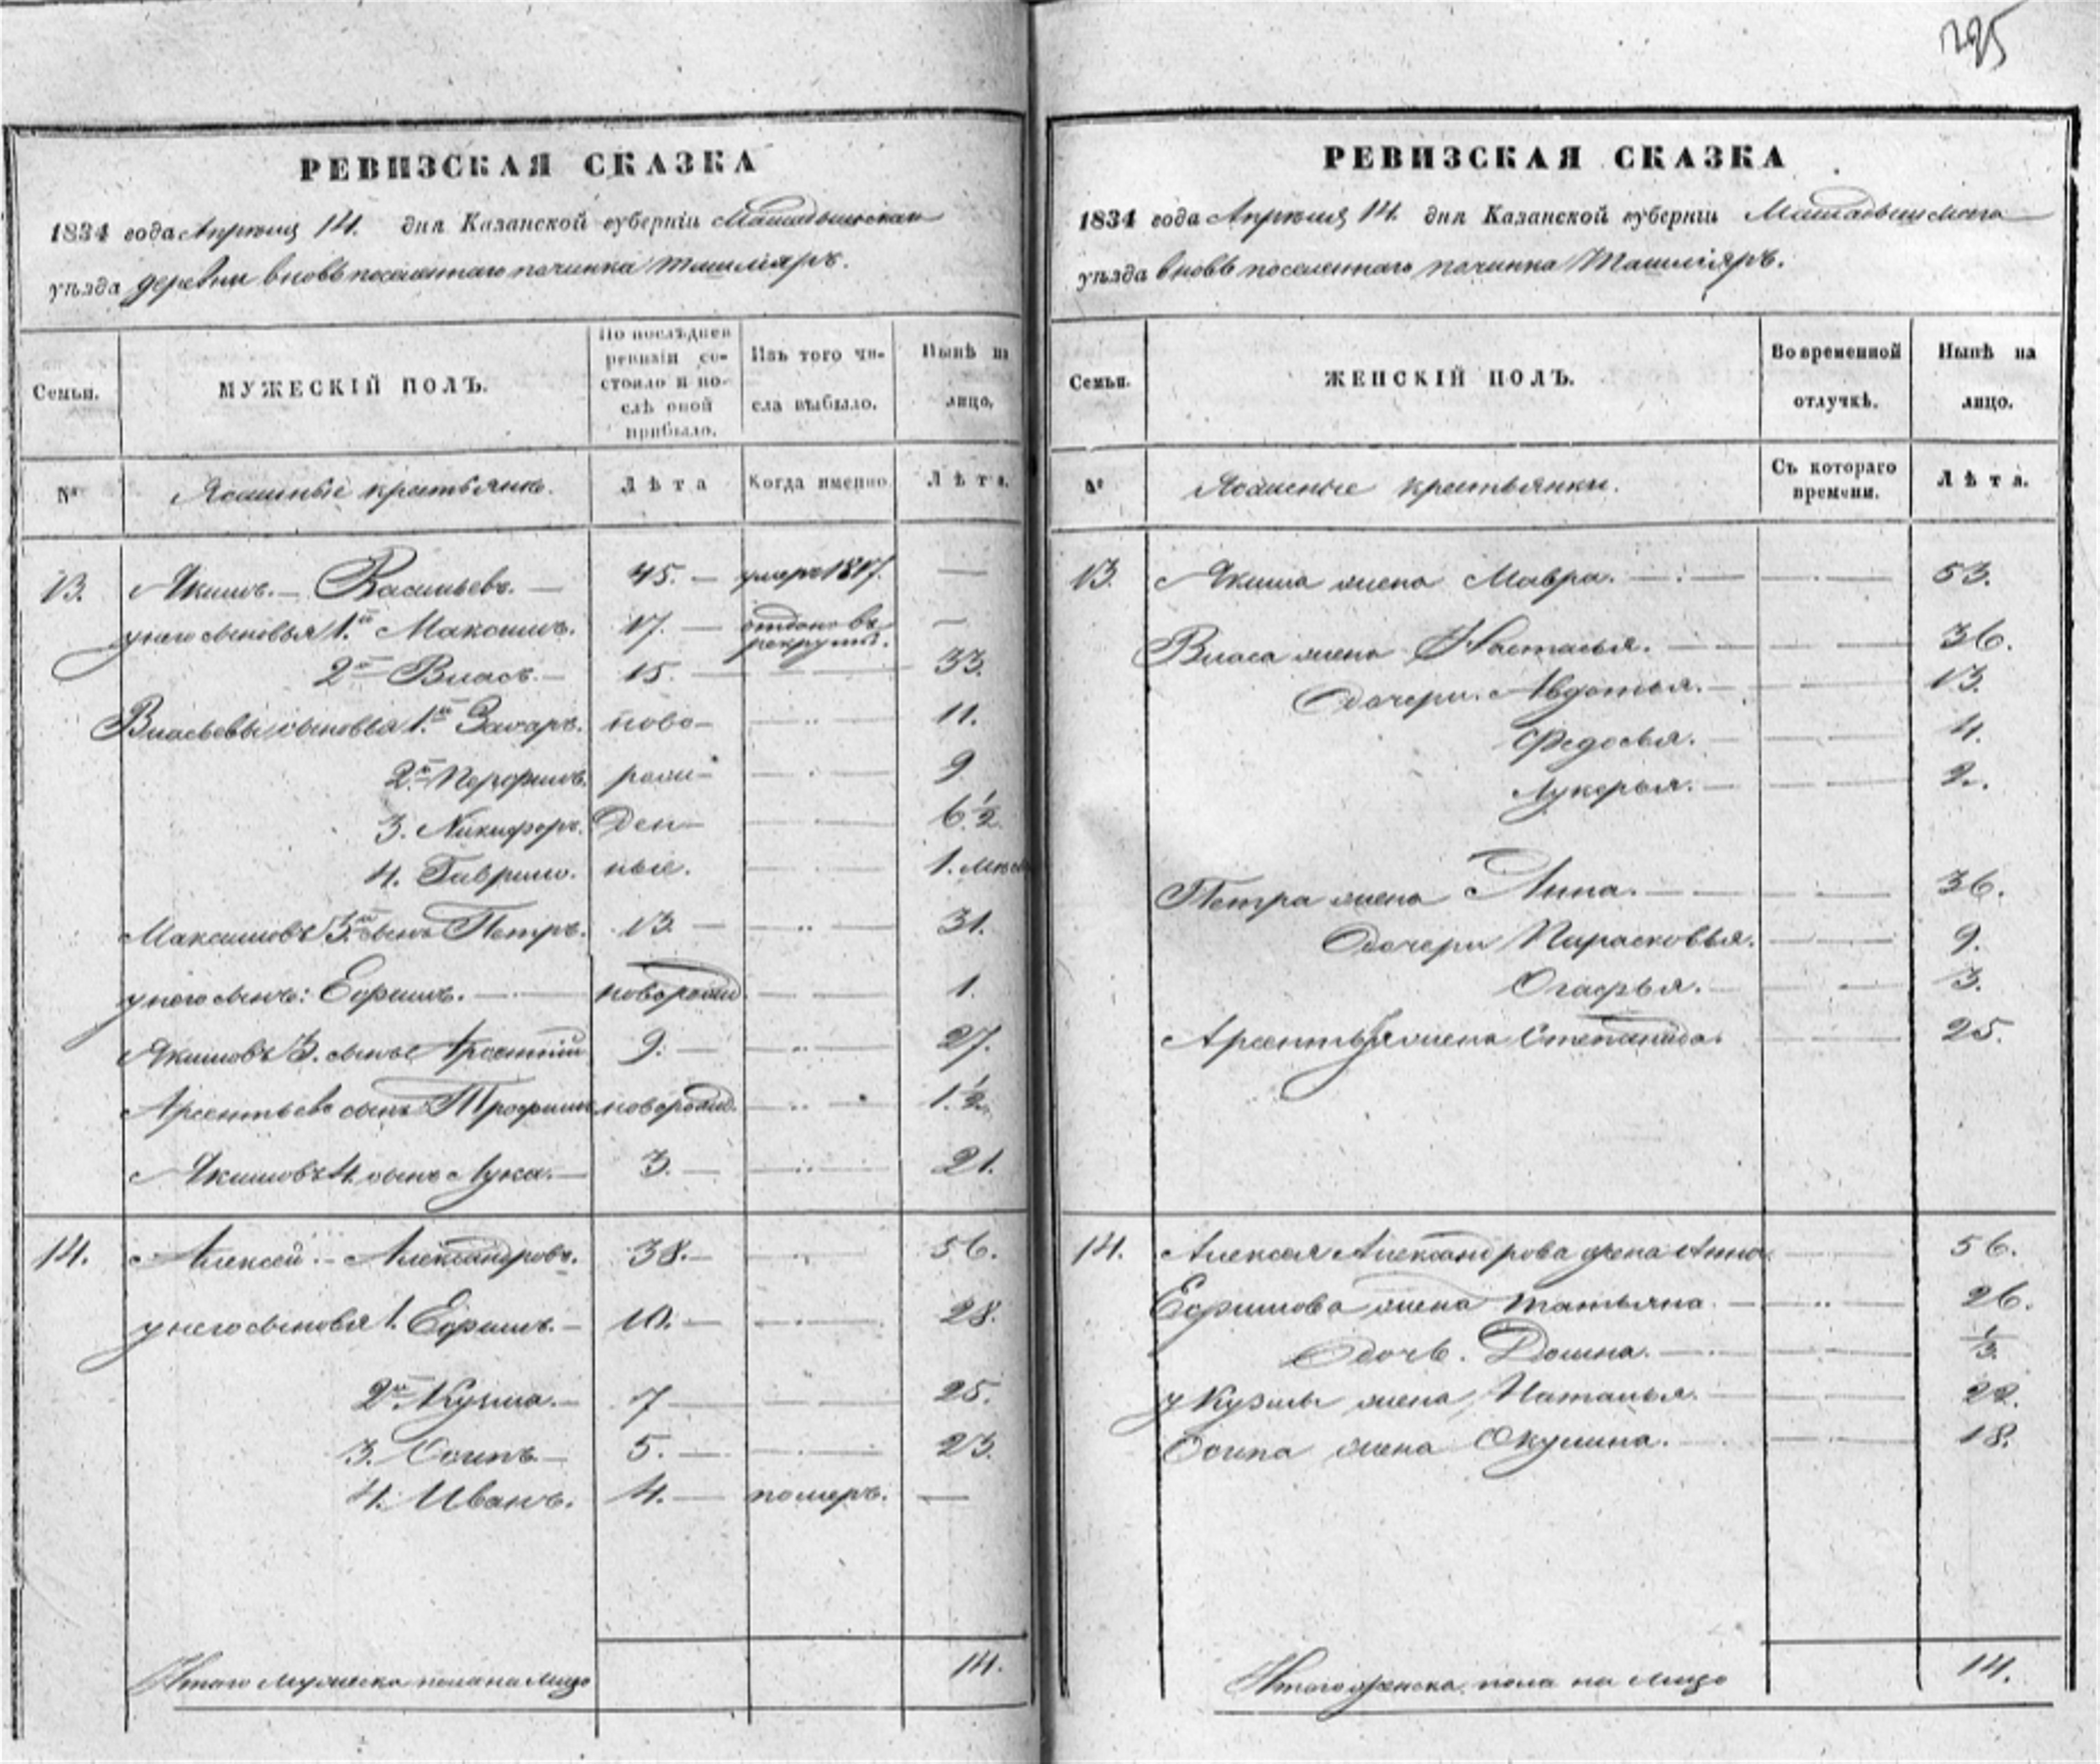 225
РЕВИЗСКАЯ СКАЗКА
1834 года Апреля 14. дня Казанской губерніи Мамадышскаго
уѣзда деревни вновь поселеннаго починка Ташліяръ.
Семьи.
МУЖЕСКІЙ ПОЛЪ.
По послѣдней ревизіи состояло и послѣ оной прибыло.
Изъ того числа выбыло.
Нынѣ на лицо.
№
Ясашные крестьяне.
Лѣта
Когда именно
Лѣта.
13. Якимъ. Васильевъ. 45. умеръ 1817. —
у него сыновья 1.й Максимъ. 17. отданъ въ рекруты. —
2й Власъ. 15. 33.
Власьевы сыновья 1.й Захаръ. ново- 11.
2.й Перфилъ. рож- 9
3. Никифоръ. ден- 6 1/2
4. Гаврило. ные. 1.
Максимовъ 3.й сынъ Петръ. 13. 31.
у него сынъ: Ефимъ. новорожд. 1.
Якимовъ 3. сынъ Арсентій 9. 27.
Арсентьевъ сынъ Трофимъ новорожд. 1. 1/2
Якимовъ 4. сынъ Лука. 3. 21.
14. Алексей. Александровъ. 38. 56.
у него сыновья 1. Ефимъ. 10. 28.
2й Кузма. 7 25.
3. Осипъ 5. 23.
4. Иванъ. 4. померъ. —
Итого мужеска пола на лицо 14.
РЕВИЗСКАЯ СКАЗКА
1834 года Апреля 14. дня Казанской губерніи Мамадышскаго
уѣзда вновь поселеннаго починка Ташліяръ.
Семьи.
ЖЕНСКІЙ ПОЛЪ.
Во временной отлучкѣ.
Нынѣ на лицо.
№
Ясашные крестьянки.
Съ котораго времени.
Лѣта.
13. Якима жена Мавра. 53.
Власа жена Настасья. 36.
дочери. Авдотья. 13.
Федосья. 4.
Лукерья. 2.
Петра жена Анна. 36.
дочери Парасковья. 9.
Огафья. 3.
Арсентья жена Степанида. 25.
14. Алексея Александрова жена Анна 56.
Ефимова жена Татьяна. 26.
дочь. Домна. 1/3.
у Кузмы жена Наталья. 22.
Осипа жена Окулина. 18.
Итого женска пола на лицо 14.